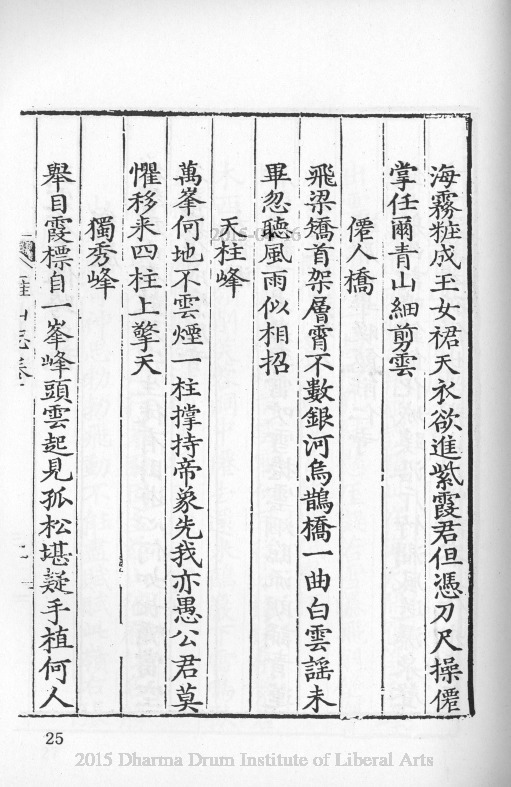 海霧粧成玉女裙天衣欲進紫霞君但憑刀尺操僊
掌任爾青山細剪雲
僊人橋
飛梁矯首架層霄不數銀河烏鵲橋一曲白雲謡未
畢忽聴風雨似相招
天柱峰
萬峯何地不雲煙一柱撐持帝象先我亦愚公君莫
懼移来四柱上擎天
獨秀峰
舉目霞標自一峯峰頭雲起見孤松堪疑手植何人
山志卷
25
2015 Dharma Drum Institute of Liberal Arts